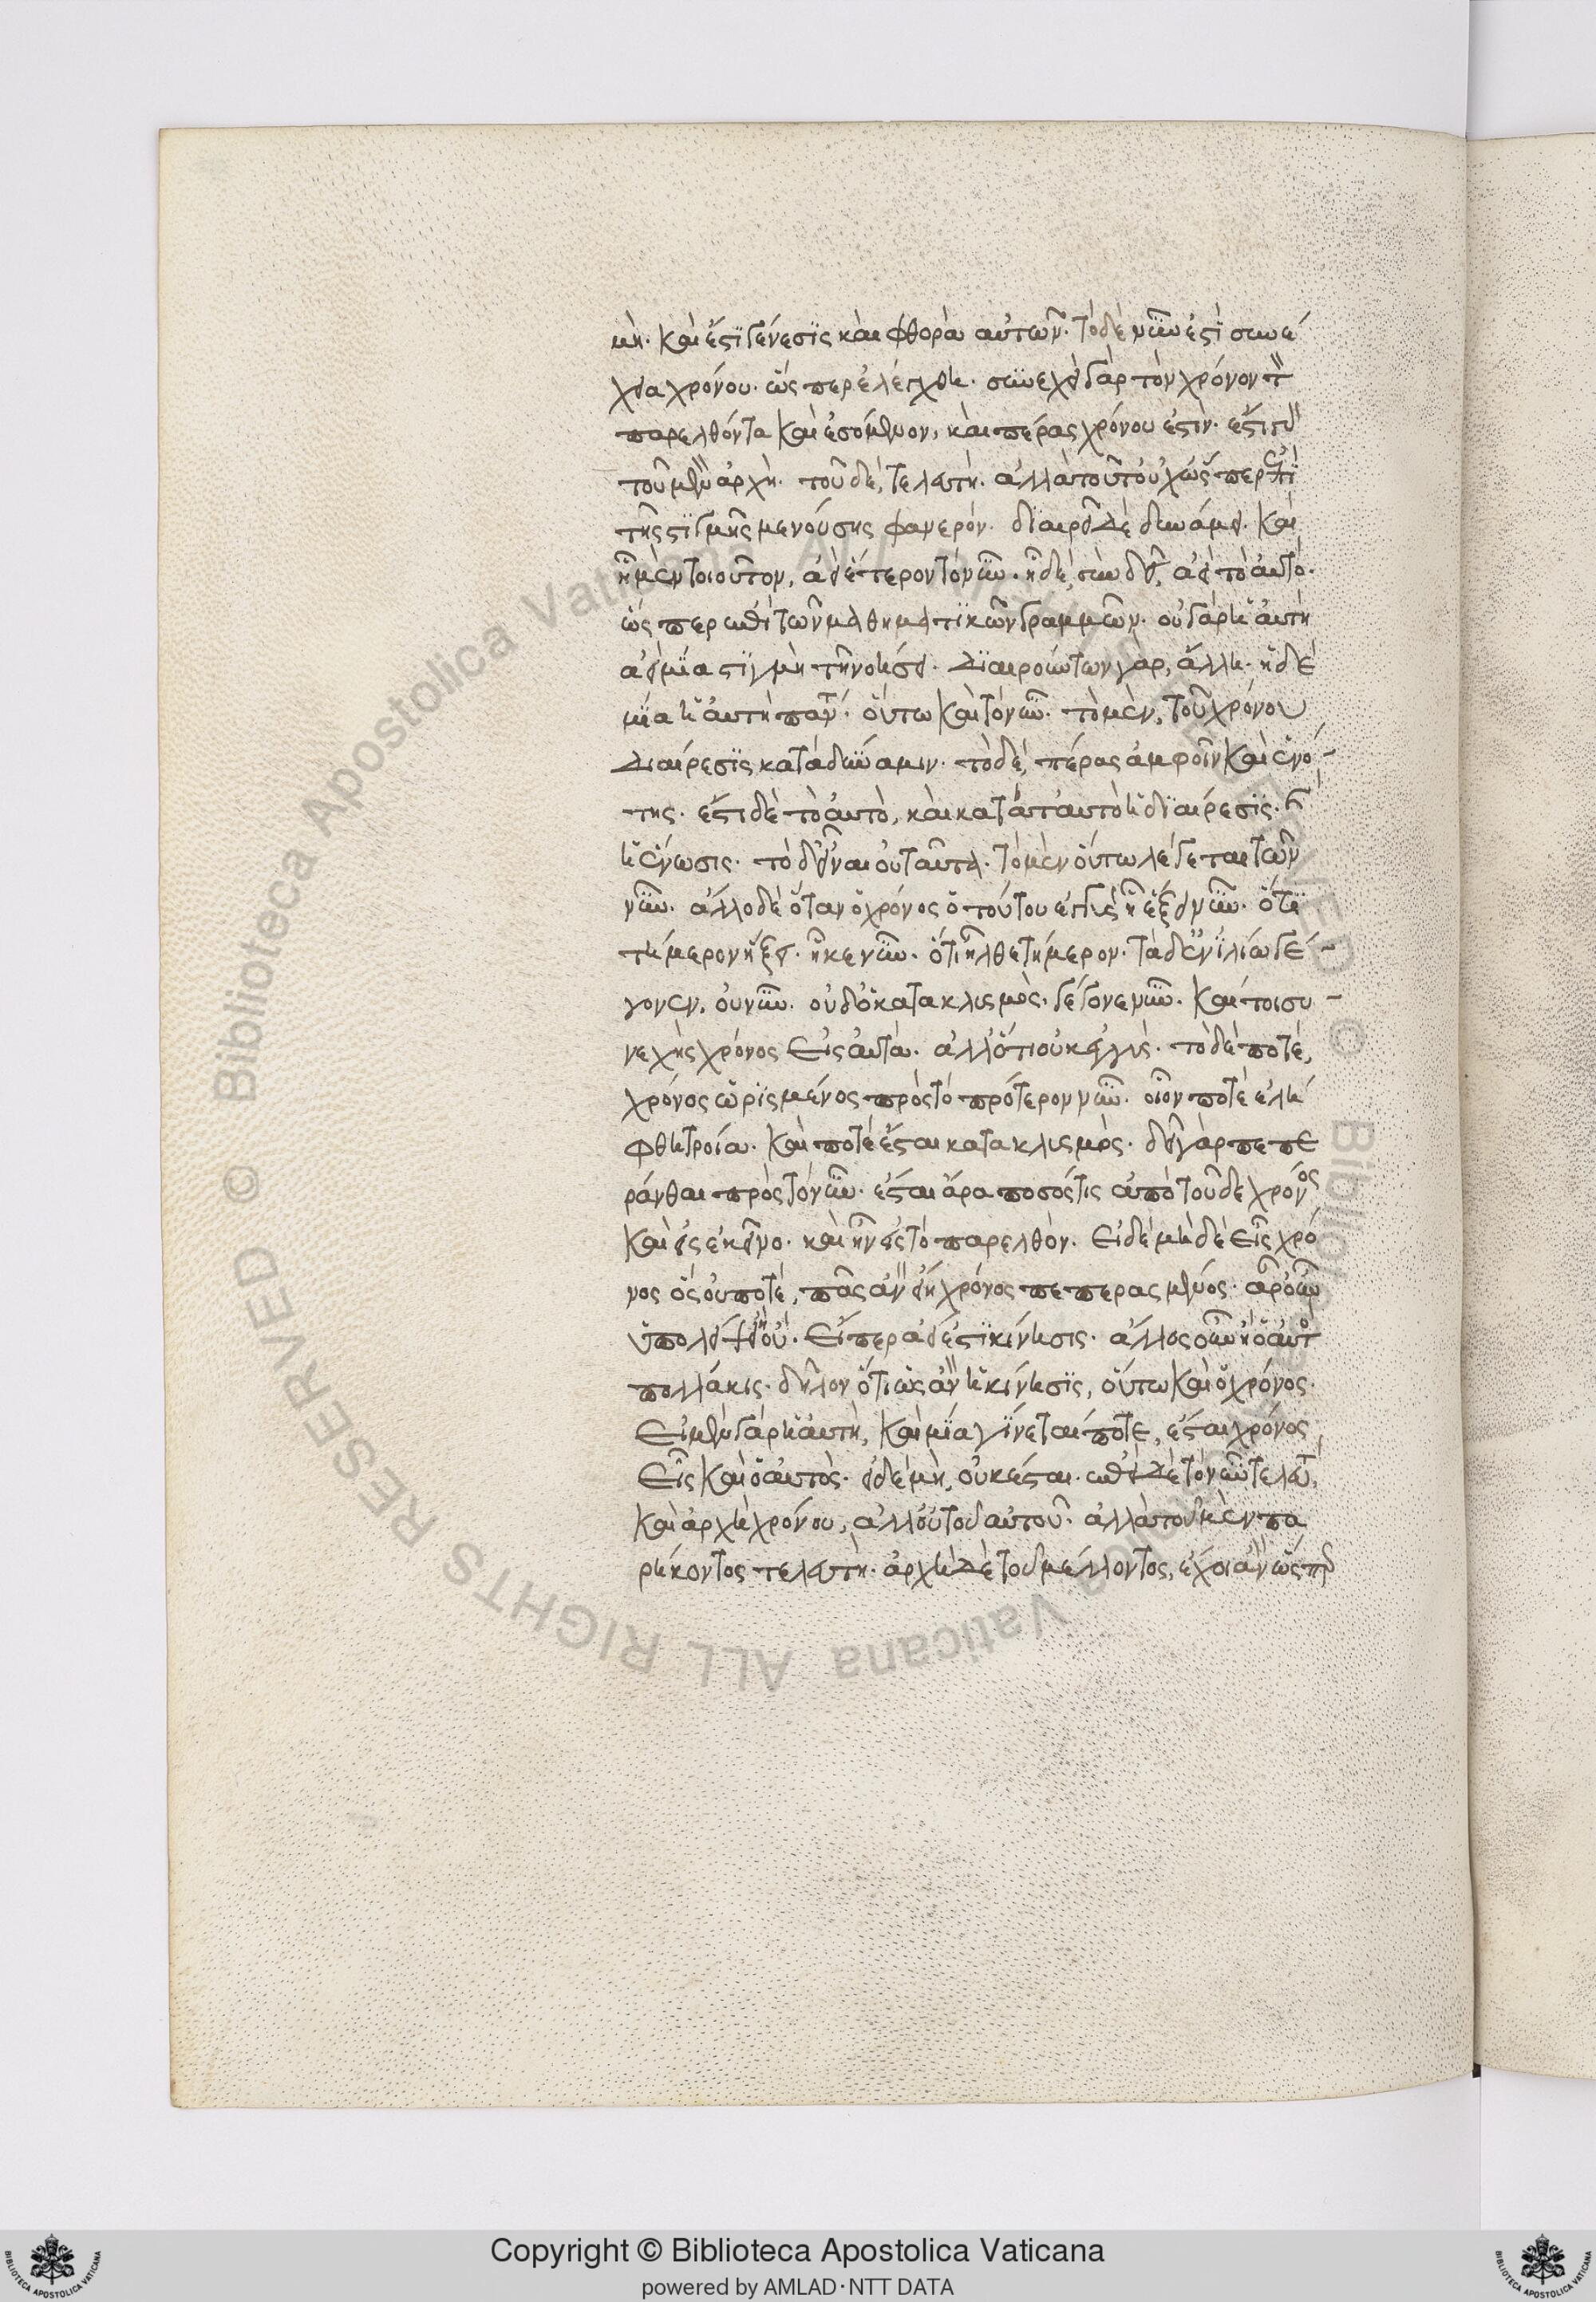 μή. καὶ ἔστι γένεσις καὶ φθορὰ αὐτῶν. τὸ δὲ νῦν ἐστὶ συνέ
χεια χρόνου. ὥσπερ ἐλέχθη. συνέχει γὰρ τὸν χρόνον τὸν
παρελθόντα καὶ ἐσόμενον, καὶ πέρας χρόνου ἐστίν. ἔστι γὰρ
τοῦ μὲν ἀρχή. τοῦ δὲ, τελευτή. ἀλλὰ τοῦτ' οὐχ ὥσπερ ἐπὶ
τῆς στιγμῆς μενούσης φανερόν. διαιρεῖ δὲ δυνάμει. καὶ
ἧ μὲν τοιοῦτον, ἀεὶ ἕτερον τὸ νῦν. ἧ δὲ συνδεῖ, ἀεὶ τὸ αὐτό.
ὥσπερ ἐπὶ τῶν μαθηματικῶν γραμμῶν. οὐ γὰρ ἡ αὐτὴ
ἀεὶ μία στιγμὴ τῆ νοήσει. διαιρούντων γὰρ, ἄλλη. ἧ δὲ
μία ἡ αὐτὴ πάντη. οὕτω καὶ τὸ νῦν. τὸ μὲν, τοῦ χρόνου
διαίρεσις κατὰ δύναμιν. τὸ δὲ, πέρας ἀμφοῖν καὶ ἑνό-
της. ἔστι δὲ τὸ αὐτὸ, καὶ κατὰ τ' αὐτὸ ἡ διαίρεσις. καὶ
ἡ ἕνωσις. τὸ δ' εἶναι οὐ ταὐτά. τὸ μὲν οὕτω λέγεται τῶν
νῦν. ἄλλο δὲ ὅταν ὁ χρόνος ὁ τούτου ἐγγὺς ἦ ἥξει νῦν. ὅτι
τήμερον ἥξει. ἥκει νῦν. ὅτι ἦλθε τήμερον. τὰ δ' ἐν ἰλίω γέ-
γονεν, οὐ νῦν. οὐδ' ὁ κατακλυσμὸς. γέγονε νῦν. καί τοι συ-
νεχὴς χρόνος εἰς αὐτά. ἀλλ' ὅτι οὐκ ἐγγύς. τὸ δὲ ποτὲ,
χρόνος ὡρισμένος πρὸς τὸ πρότερον νῦν. οἷον ποτὲ ἐλή
φθη τροία. καὶ ποτὲ ἔσται κατακλυσμὸς. δεῖ γὰρ πεπε
ράνθαι πρὸς τὸ νῦν. ἔσται ἄρα ποσός τις ἀπὸ τοῦδε χρόνος
καὶ εἰς ἐκεῖνο. καὶ ἦν εἰς τὸ παρελθόν. εἰ δὲ μηδὲ εἷς χρό
νος ὃς οὐ ποτὲ, πᾶς ἂν εἴη χρόνος πεπερασμένος. ἆρ' οὖν
ὑπολείψει ἢ οὔ. εἴπερ ἀεὶ ἔστι κίνησις. ἄλλος οὖν ἢ ὁ αὐτὸς
πολλάκις. δῆλον ὅτι ὡς ἂν ἡ κίνησις, οὕτω καὶ ὁ χρόνος.
εἰ μὲν γὰρ ἡ αὐτὴ, καὶ μία γίνεταί ποτε, ἔσται χρόνος
εἷς καὶ ὁ αὐτὸς. εἰ δὲ μὴ, οὐκ ἔσται. ἐπεὶ δὲ τὸ νῦν τελευτὴ
καὶ ἀρχὴ χρόνου, ἀλλ' οὐ τοῦ αὐτοῦ. ἀλλὰ τοῦ μὲν πα
ρήκοντος τελευτή. ἀρχὴ δὲ τοῦ μέλλοντος, ἔχοι ἂν ὥσπερ
Copyright © Biblioteca Apostolica Vaticana
powered by AMLAD·NTT DATA